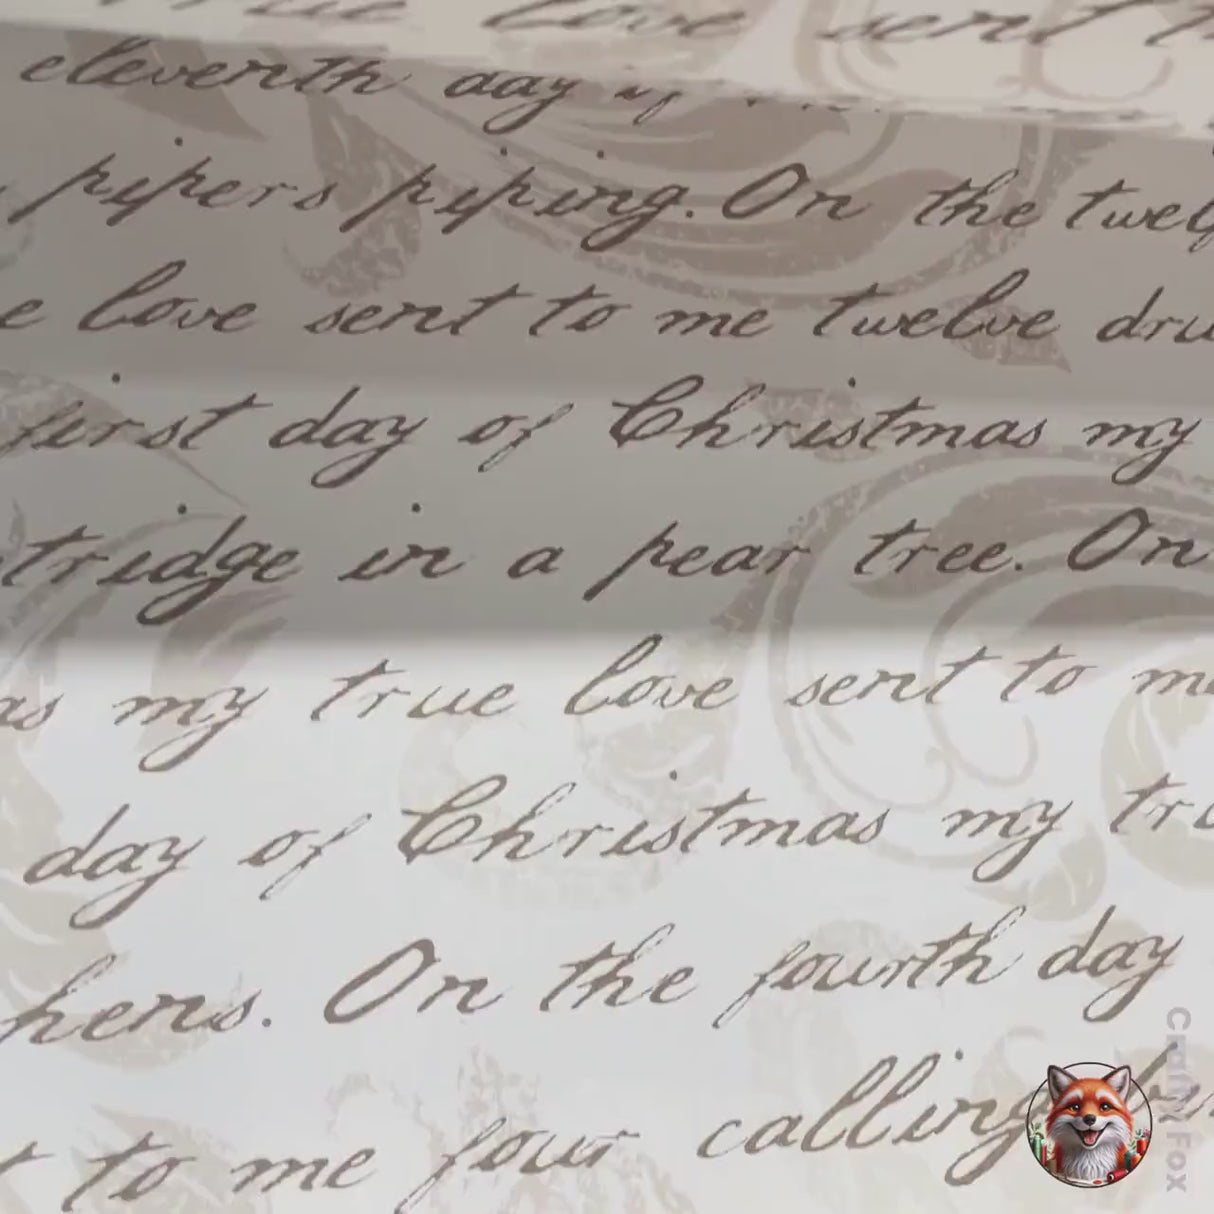 true love sent
eleventh day of
pipers piping. On the
love sent to me twelve
first day of Christmas my
in a pear tree. On
my true love sent to
day of Christmas my
hens. On the fourth day
to me four calling
Crafty Fox